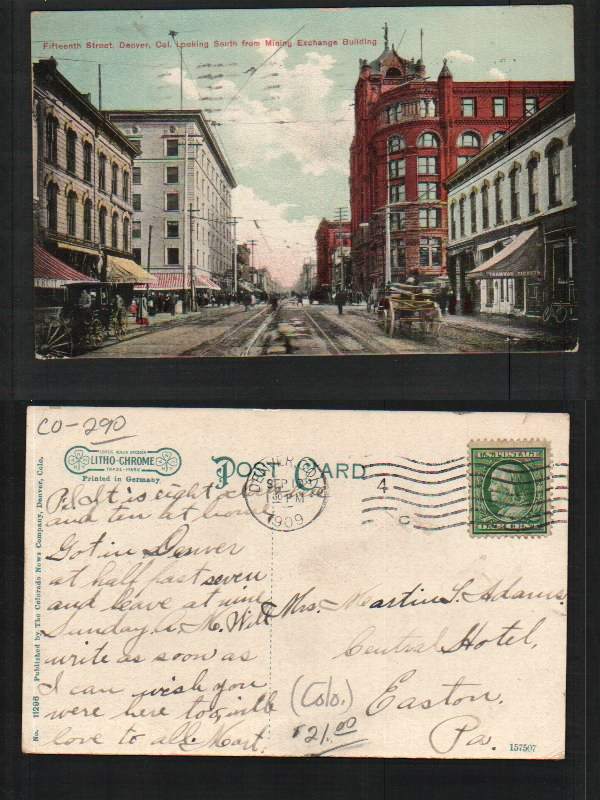 Fifteenth Street, Denver, Col. Looking South from Mining Exchange Building
CO-290
LITHO-CHROME
TRADE-MARK
Printed in Germany
POST CARD
DENVER, COLO.
SEP 18
30 PM
1909
4
C
U.S. POSTAGE
ONE CENT
P.S. It is eight o'clock here
and ten at home
Got in Denver
at half past seven
and leave at nine
Sunday a. m. Will
write as soon as
I can wish you
were here too, with
love to all. Mart.
Mrs. Martin L. Adams.
Central Hotel,
Easton.
Pa.
(Colo.)
$21.00
No. 11296 Published by The Colorado News Company, Denver, Colo.
157507